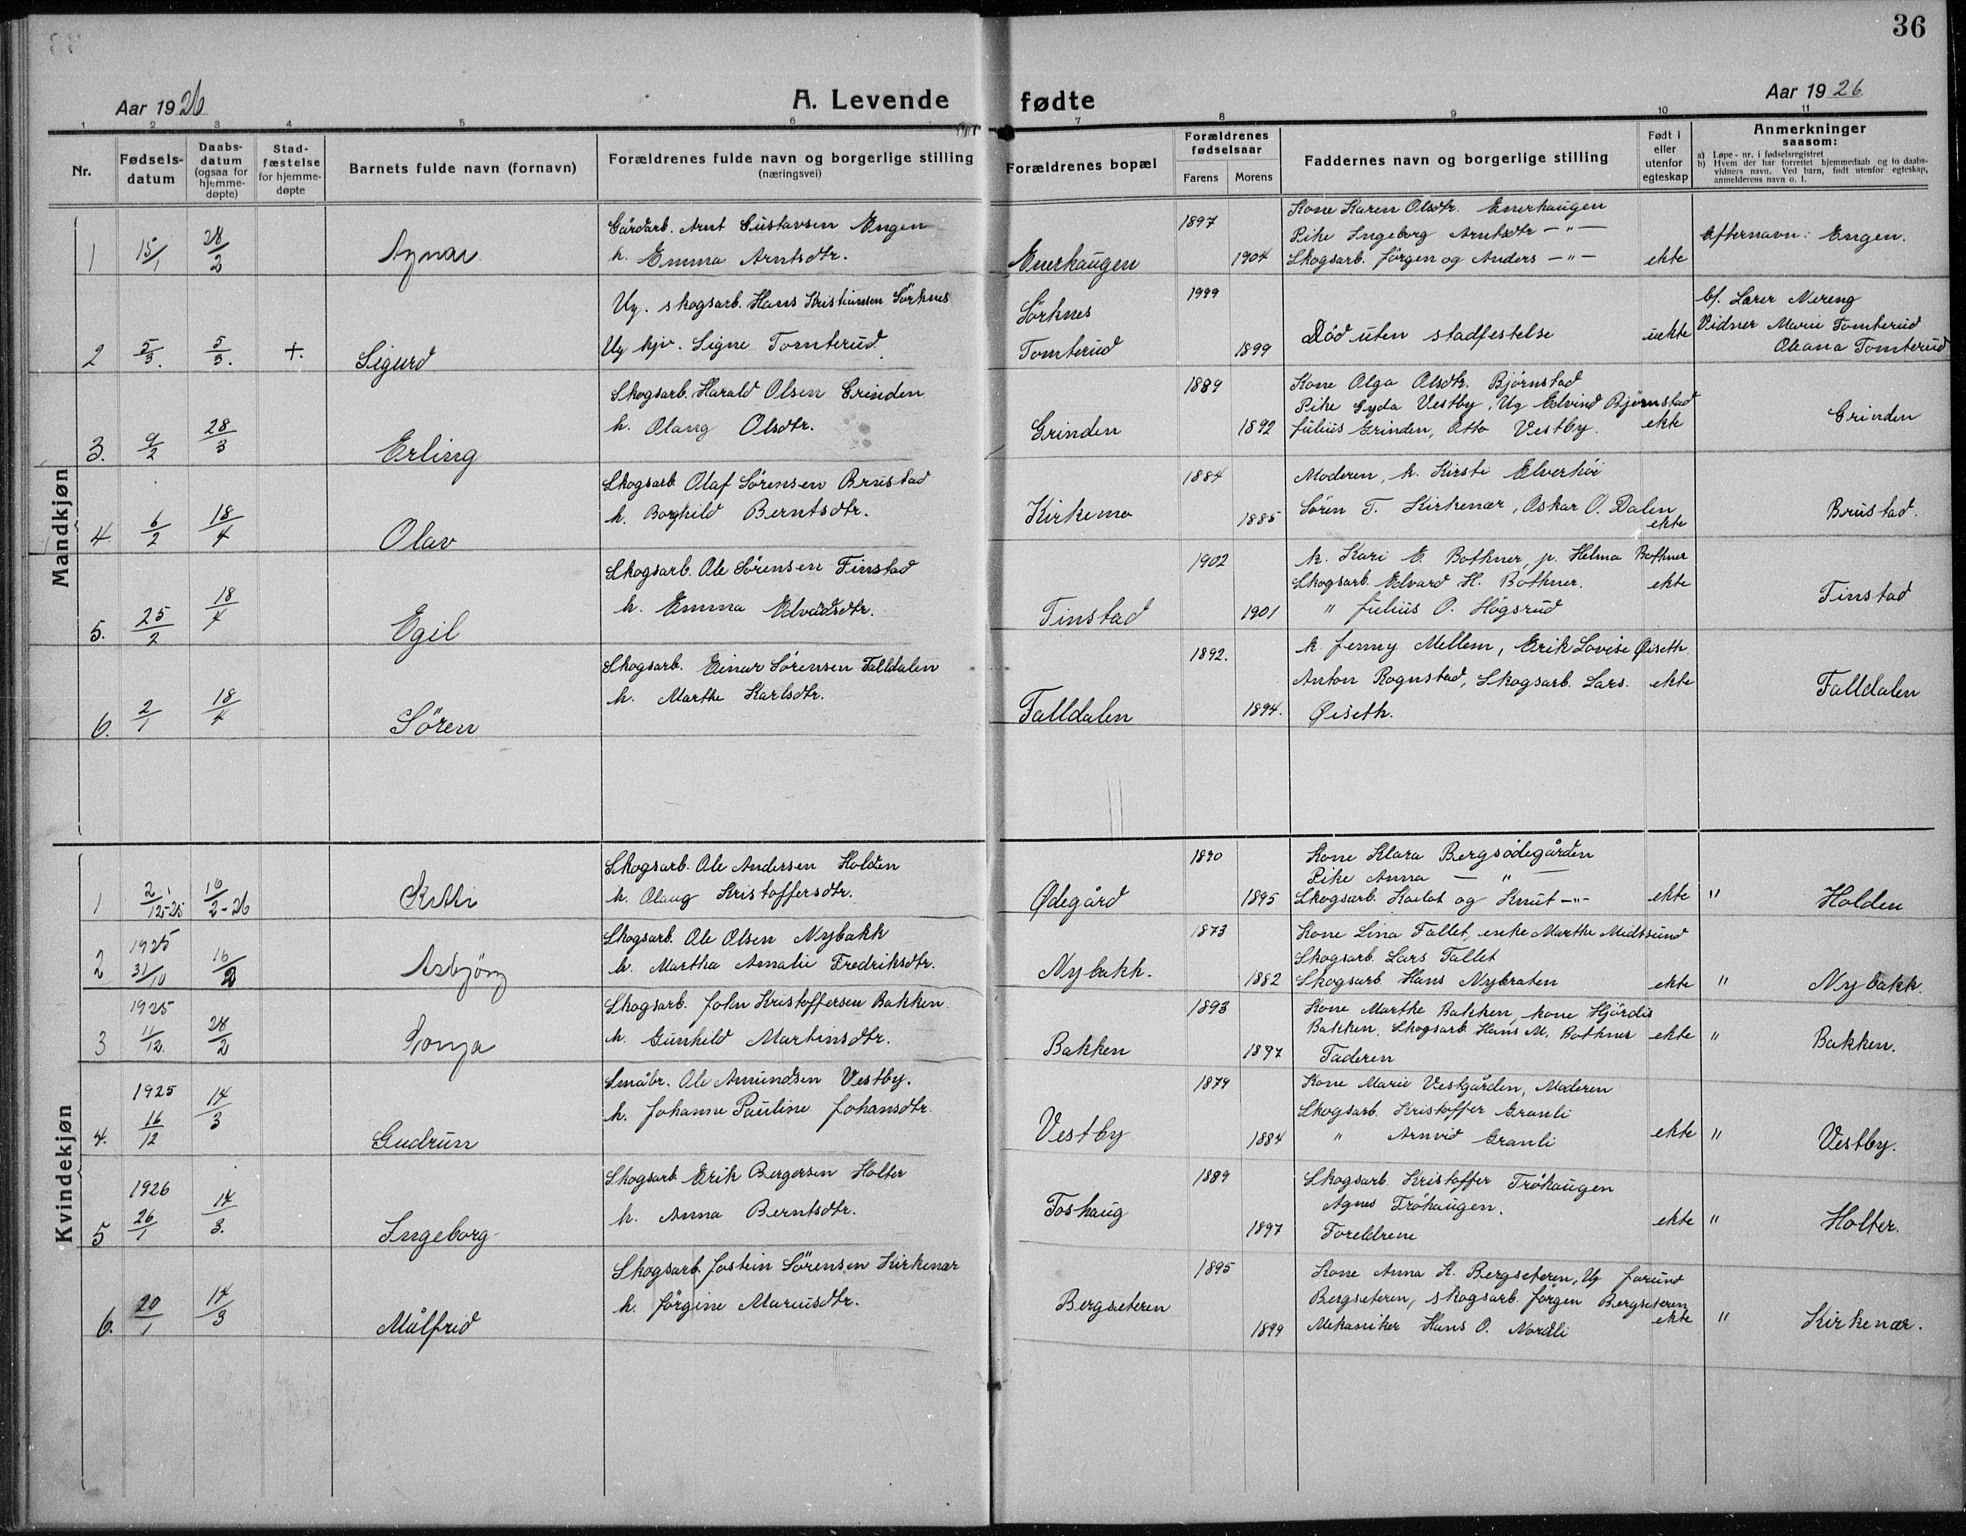 36
Aar 1926
A. Levende fødte
Aar 1926
1 2 3 4 5 6 7 8 9 10 11
Nr.
Fødsels-datum
Daabs-datum (ogsaa for hjemme-døpte)
Stad-fæstelse for hjemme-døpte
Barnets fulde navn (fornavn)
Forældrenes fulde navn og borgerlige stilling (næringsvei)
Forældrenes bopæl
Forældrenes fødselsaar
Farens
Morens
Faddernes navn og borgerlige stilling
Født i eller utenfor egteskap
Anmerkninger saasom:
a) Løpe-nr. i fødselsregistret
b) Hvem der har forrettet hjemmedaab og to daabs-vidners navn. Ved barn, født utenfor egteskap, anmelderens navn o. l.
Mandkjøn
1 15/1 28/2 Aynar
Gårdarb. Arnt Gustavsen Engen
h. Emma Arntsdtr.
Enerhaugen 1897 1904
Kone Karen Olsdtr. Enerhaugen
Pike Ingeborg Arntsdtr —"—
Skogsarb. Jörgen og Anders —"— ekte
Efternavn: Engen.
2 5/3. 5/3. +. Sigurd
Ug. skogsarb. Hans Kristiansen Sörknes
Ug hjv. Signe Tomterud
Sörknes
Tomterud 1999 1899
Död uten stadfestelse uekte
bf. Lærer Nereng
Vidner Marie Tomterud
Oleana Tomterud
3. 9/2 28/3 Erling
Skogsarb. Harald Olsen Grinden
h. Olaug Olsdtr.
Grinden 1889 1892
Kone Olga Olsdtr. Bjørnstad
Pike Gyda Vestby, Ug Edvind Bjørnstad
Julius Grinden, Otto Vestby. ekte
Grinden
4. 6/2 18/4 Olav
Skogsarb. Olaf Sörensen Brustad
h. Borghild Berntsdtr.
Kirkemo 1884 1885
Moderen, k. Kirsti Elverhöi
Sören T. Kirkenær, Oskar O. Dalen
ekte
Brustad.
5. 25/2 18/4 Egil
Skogsarb. Ole Sörensen Finstad
h. Emma Edvardsdtr.
Finstad 1902 1901
k. Kari E. Bothner, p. Helma Bothner
Skogsarb. Edvard H. Bothner. ekte
" Julius O. Högsrud
Finstad
6. 2/1 18/4 Sören
Skogsarb. Einar Sörensen Falldalen
h. Marthe Karlsdtr.
Falldalen 1892. 1894.
k. Jenny Mellem, Erik Lovise Øiseth.
Anton Rognstad, Skogsarb. Lars. ekte
Øiseth.
Falldalen
Kvindekjøn
1 2/12-25 16/2-26
Skogsarb. Ole Andersen Holden
h. Olaug Kristoffersdtr.
Ødegård 1890 1895
Kone Klara Bergsödegården
Pike Anna — " —
Skogsarb. Karlot og Knut —"— ekte " Holden
2 1925 31/10 16/2 Asbjörg
Skogsarb. Ole Olsen Nybakk
h. Martha Amalie Fredriksdtr.
Nybakk. 1873 1882
Kone Lina Fallet, enke Marthe Midtsund
Skogsarb. Lars Fallet
Skogsarb. Hans Nybraten ekte " Nybakk.
3 1925 11/12. 28/2 Sonja
Skogsarb. John Kristoffersen Bakken.
h. Gunhild Martinsdtr.
Bakken 1893 1897
Kone Marthe Bakken, kone Hjördis
Bakken, Skogsarb. Hans M. Bothner ekte " Bakken.
Faderen
4. 1925 16/12 14/3 Gudrun
Småbr. Ole Amundsen Vestby.
h. Johanne Pauline Johansdtr.
Vestby 1879 1884
Kone Marie Vestgården, Moderen
Skogsarb. Kristoffer Granli
" Arnvid Granli ekte " Vestby.
5 1926 26/1 14/3. Ingeborg
Skogsarb. Erik Bergersen Holter
h. Anna Berntsdtr.
Foshaug 1889 1897
Skogsarb. Kristoffer Tröhaugen
Agnes Tröhaugen.
Foreldrene ekte " Holter.
6. 20/1 14/3 Målfrid
Skogsarb. Jostein Sörensen Kirkenær
h. Jörgine Mariusdtr.
Bergseteren 1895 1899
Kone Anna K. Bergseteren, Ug Jorund
Bergseteren, skogsarb. Jörgen Bergseteren
Mekaniker Hans O. Nordli ekte " Kirkenær.